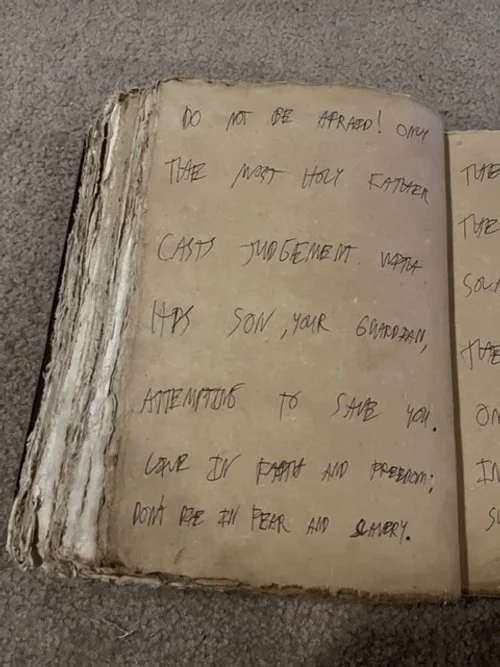 DO NOT BE AFRAID! ONLY
THE MOST HOLY FATHER
CASTS JUDGEMENT WITH
HIS SON, YOUR GUARDIAN,
ATTEMPTING TO SAVE YOU.
LIVE IN FAITH AND FREEDOM;
DON'T DIE IN FEAR AND SLAVERY.
THE
THE
THE
ON
IN